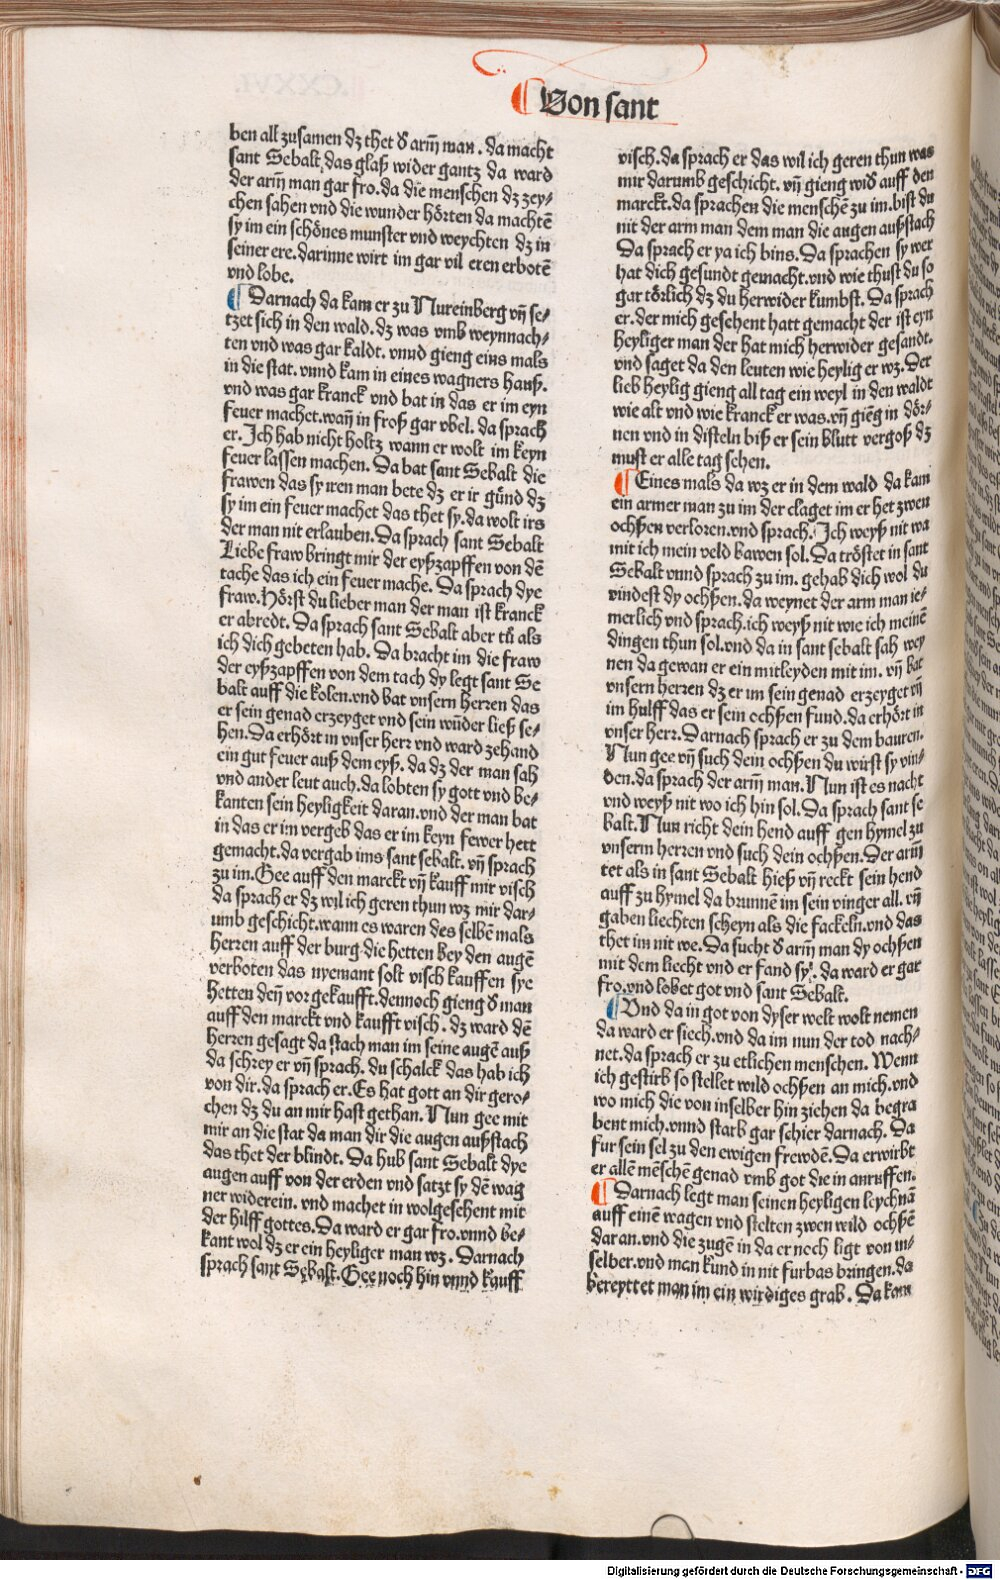 Von sant
ben all zusamen dz thet d̕ arm̄ man. da macht
sant Sebalt das glaß wider gantz da ward
der arm̄ man gar fro. da die menschen dz zey-
chen sahen vnd die wunder hörten da machtē
sy im ein schönes munster vnd weychten dz in
seiner ere. darinne wirt im gar vil eren erbotē
vnd lobe.
Darnach da kam er zu Nureinberg vn̄ se-
tzet sich in den wald. dz was vmb weynnach-
ten vnd was gar kaldt. vnnd gieng eins mals
in die stat. vnnd kam in eines wagners hauß.
vnd was gar kranck vnd bat in das er im eyn
feuer machet. wan̄ in froß gar vbel. da sprach
er. Ich hab nicht holtz wann er wolt im keyn
feuer lassen machen. Da bat sant Sebalt die
frawen das sy iren man bete dz er ir gūnd dz
sy im ein feuer machet das thet sy. da wolt irs
der man nit erlauben. Da sprach sant Sebalt
Liebe fraw bringt mir der eyßzapffen von dē
tache das ich ein feuer mache. Da sprach dye
fraw. Hörst du lieber man der man ist kranck
er abredt. Da sprach sant Sebalt aber tů als
ich dich gebeten hab. Da bracht im die fraw
der eyßzapffen von dem tach dy legt sant Se
balt auff die kolen. vnd bat vnsern herren das
er sein genad erzeyget vnd sein wūder ließ se-
hen. Da erhört in vnser herr vnd ward zehand
ein gut feuer auß dem eyß. da dz der man sah
vnd ander leut auch. da lobten sy gott vnd be-
kanten sein heyligkeit daran. vnd der man bat
in das er im vergeb das er im keyn fewer hett
gemacht. da vergab ims sant sebalt. vn̄ sprach
zu im. Gee auff den marckt vn̄ kauff mir visch
da sprach er dz wil ich geren thun wz mir dar-
umb geschicht. wann es waren des selbē mals
herren auff der burg die hetten bey den augē
verboten das nyemant solt visch kauffen sye
hetten den̄ vor gekaufft. dennoch gieng d̕ man
auff den marckt vnd kaufft visch. dz ward dē
herren gesagt da stach man im seine augē auß
da schrey er vn̄ sprach. du schalck das hab ich
von dir. da sprach er. Es hat gott an dir gero-
chen dz du an mir hast gethan. Nun gee mit
mir an die stat da man dir die augen außstach
das thet der blindt. Da hub sant Sebalt dye
augen auff von der erden vnd satzt sy dē wag
ner widerein. vnd machet in wolgesehent mit
der hilff gottes. Da ward er gar fro. vnnd be-
kant wol dz er ein heyliger man wz. Darnach
sprach sant Sebalt. Gee noch hin vnnd kauff
visch. da sprach er das wil ich geren thun was
mir darumb geschicht. vn̄ gieng wid̕ auff den
marckt. da sprachen die menschē zu im. bist du
nit der arm man dem man die augen außstach
Da sprach er ya ich bins. Da sprachen sy wer
hat dich gesundt gemacht. vnd wie thust du so
gar törlich dz du herwider kumbst. Da sprach
er. der mich gesehent hatt gemacht der ist eyn
heyliger man der hat mich herwider gesandt.
vnd saget da den leuten wie heylig er wz. Der
lieb heylig gieng all tag ein weyl in den waldt
wie alt vnd wie kranck er was. vn̄ giēg in dör-
nen vnd in disteln biß er sein blutt vergoß dz
must er alle tag sehen.
Eines mals da wz er in dem wald da kam
ein armer man zu im der claget im er het zwen
ochßen verloren. vnd sprach. Ich weyß nit wa
mit ich mein veld bawen sol. Da tröstet in sant
Sebalt vnnd sprach zu im. gehab dich wol du
vindest dy ochßen. da weynet der arm man ie-
merlich vnd sprach. ich weyß nit wie ich meinē
dingen thun sol. vnd da in sant sebalt sah wey
nen da gewan er ein mitleyden mit im. vn̄ bat
vnsern herren dz er im sein genad erzeyget vn̄
im hulff das er sein ochßen fund. da erhört in
vnser herr. Darnach sprach er zu dem bauren.
Nun gee vn̄ such dein ochßen du wirst sy vin-
den. da sprach der arm̄ man. Nun ist es nacht
vnd weyß nit wo ich hin sol. Da sprach sant se
balt. Nun richt dein hend auff gen hymel zu
vnserm herren vnd such dein ochßen. Der arm̄
tet als in sant Sebalt hieß vn̄ reckt sein hend
auff zu hymel da brunnē im sein vinger all. vn̄
gaben liechten scheyn als die fackeln. vnd das
thet im nit we. Da sucht d̕ arm̄ man dy ochßen
mit dem liecht vnd er fand sy. da ward er gar
fro. vnd lobet got vnd sant Sebalt.
Vnd da in got von dyser welt wolt nemen
da ward er siech. vnd da im nun der tod nach-
net. da sprach er zu etlichen menschen. Wenn
ich gestirb so stellet wild ochßen an mich. vnd
wo mich die von inselber hin ziehen da begra
bent mich. vnnd starb gar schier darnach. Da
fur sein sel zu den ewigen frewdē. Da erwirbt
er allē mēschē genad vmb got die in anruffen.
Darnach legt man seinen heyligen leychnā
auff einē wagen vnd stelten zwen wild ochßē
daran. vnd die zugē in da er noch ligt von in-
selber. vnd man kund in nit furbas bringen. da
bereyttet man im ein wirdiges grab. Da kam
Digitalisierung gefördert durch die Deutsche Forschungsgemeinschaft - DFG